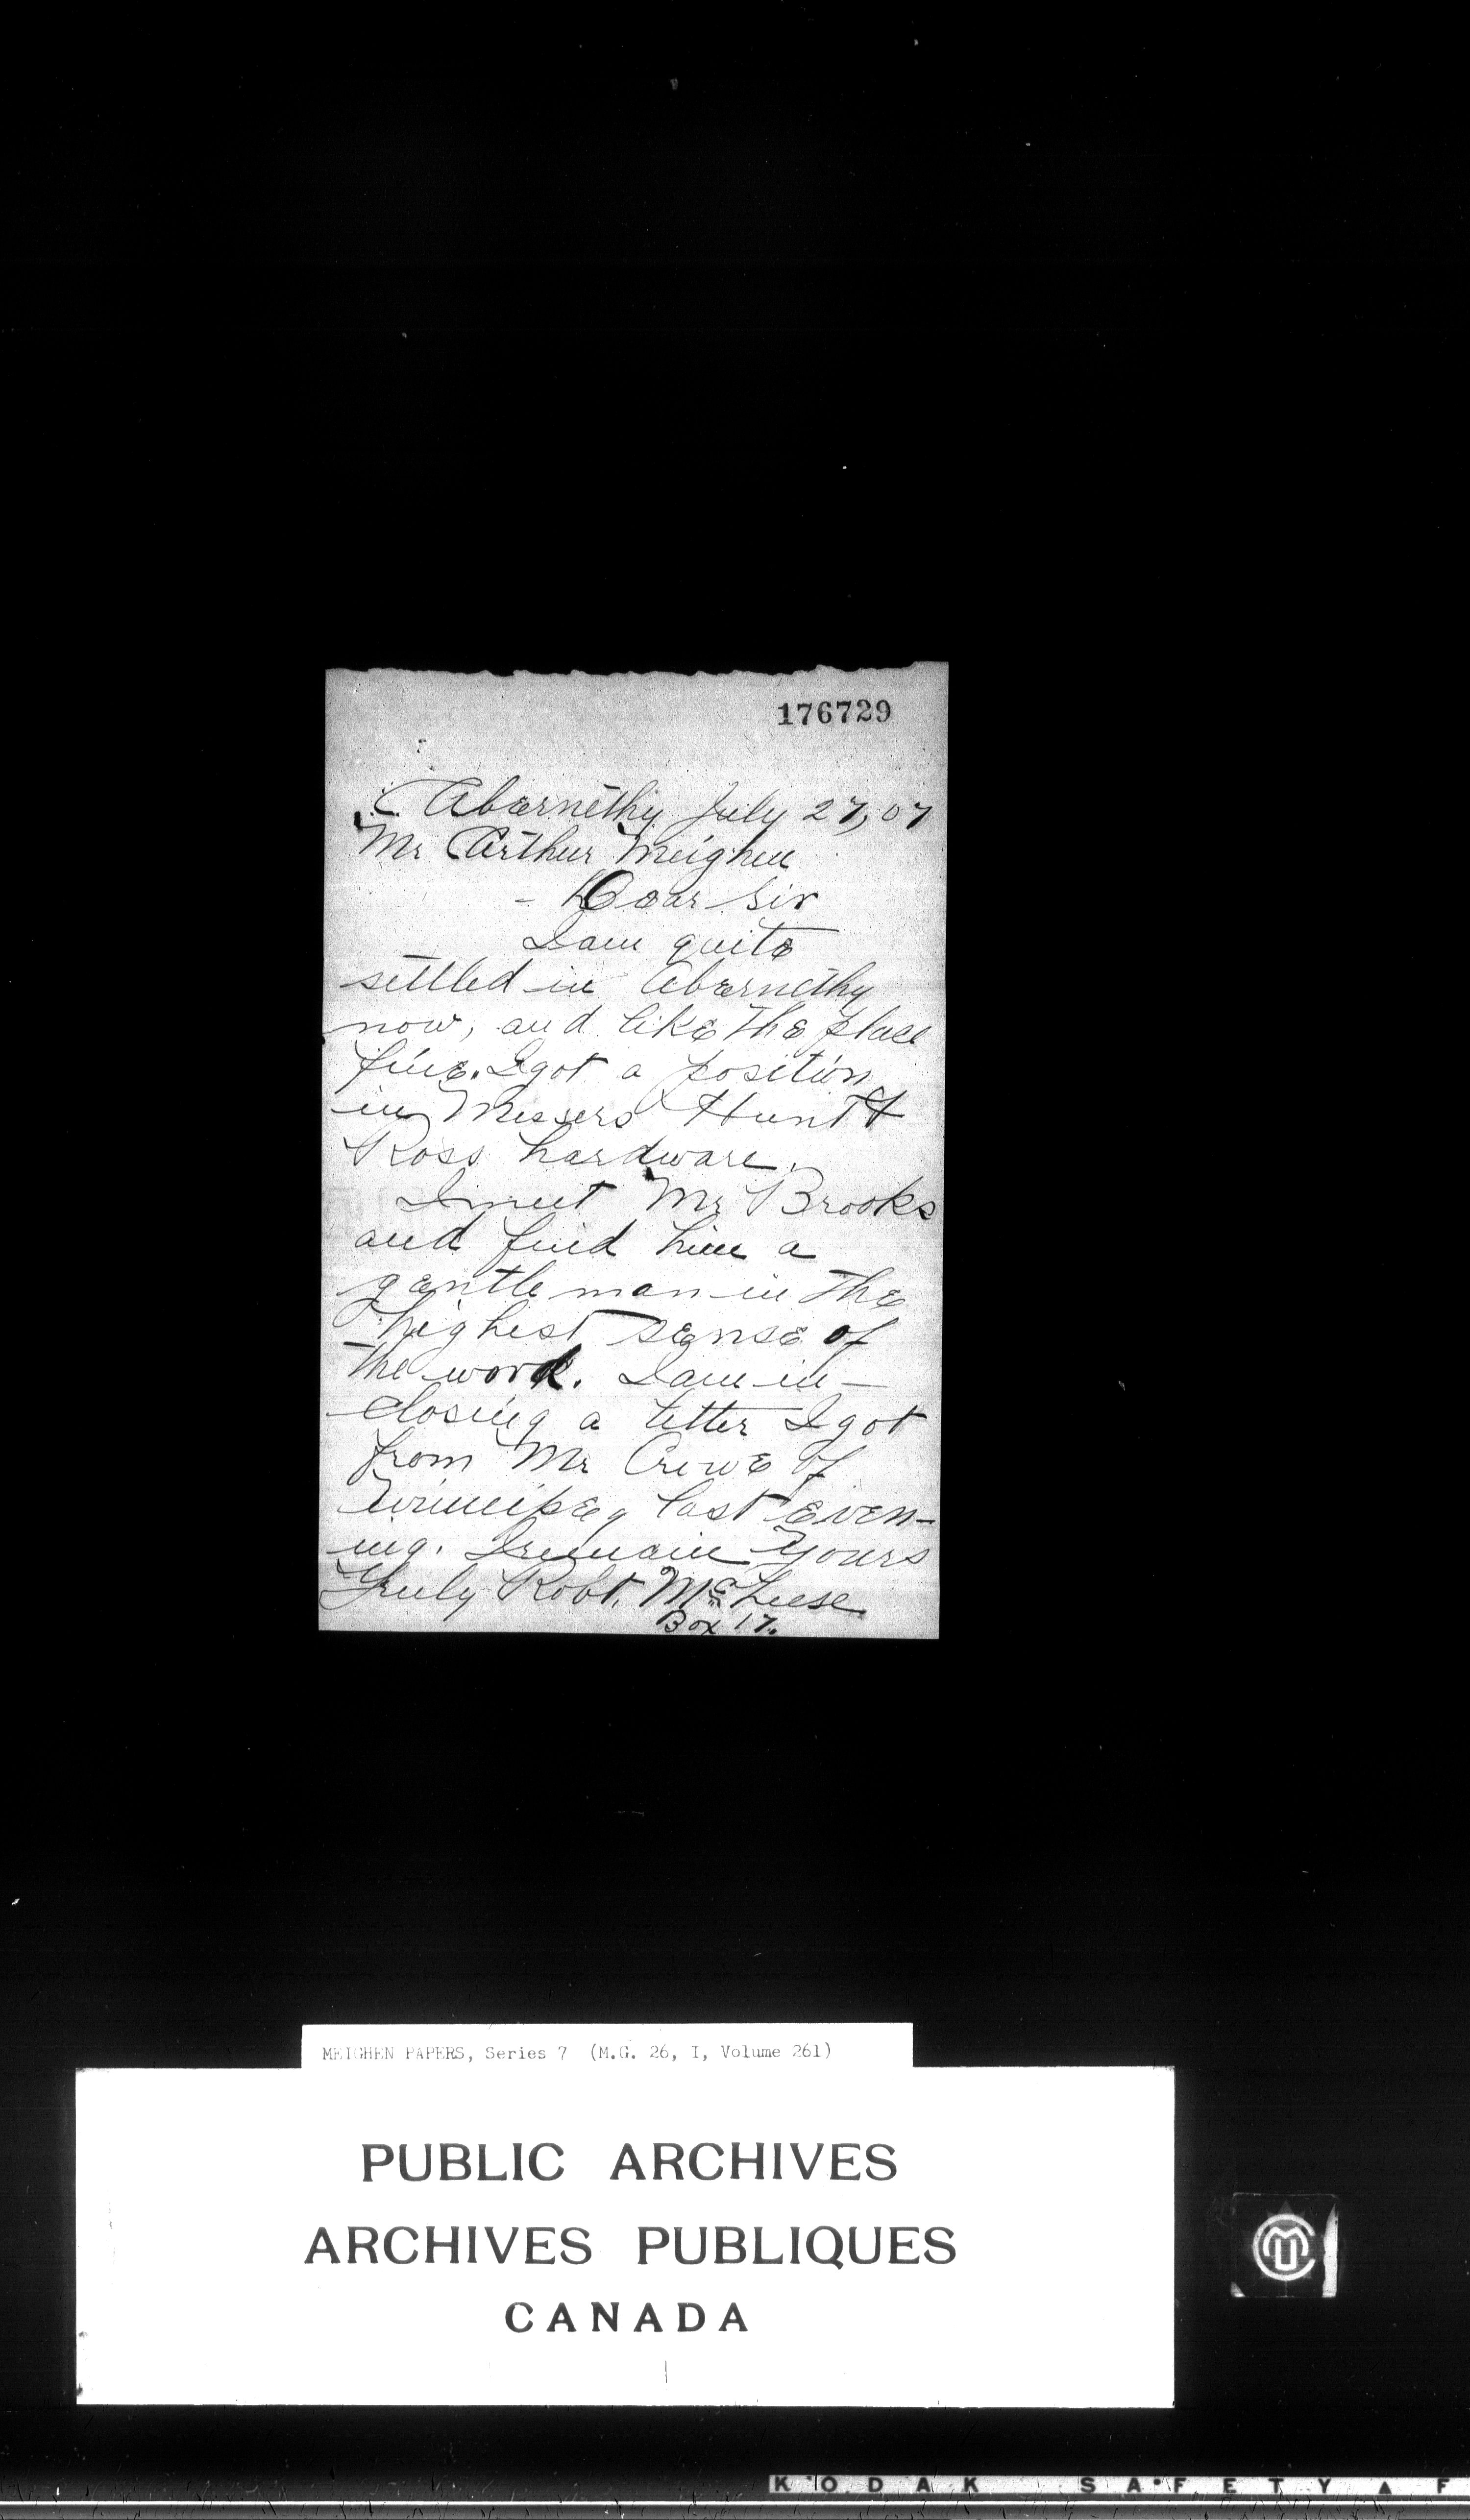 176729
Abernethy July 27, 07
Mr Arthur Meighen
- Dear Sir
I am quite
settled in Abernethy
now, and like the place
fine. I got a position
in Messers Hunt &
Ross hardware.
I meet Mr Brooks
and find him a
gentleman in the
highest sense of
the word. I am in-
closing a letter I got
from Mr Crowe of
Winnipeg last even-
ing. I remain Yours
Truly Robt.
Box 17.
MEIGHEN PAPERS, Series 7 (M.G. 26, I, Volume 261)
PUBLIC ARCHIVES
ARCHIVES PUBLIQUES
CANADA
KODAK SAFETY ▲ F